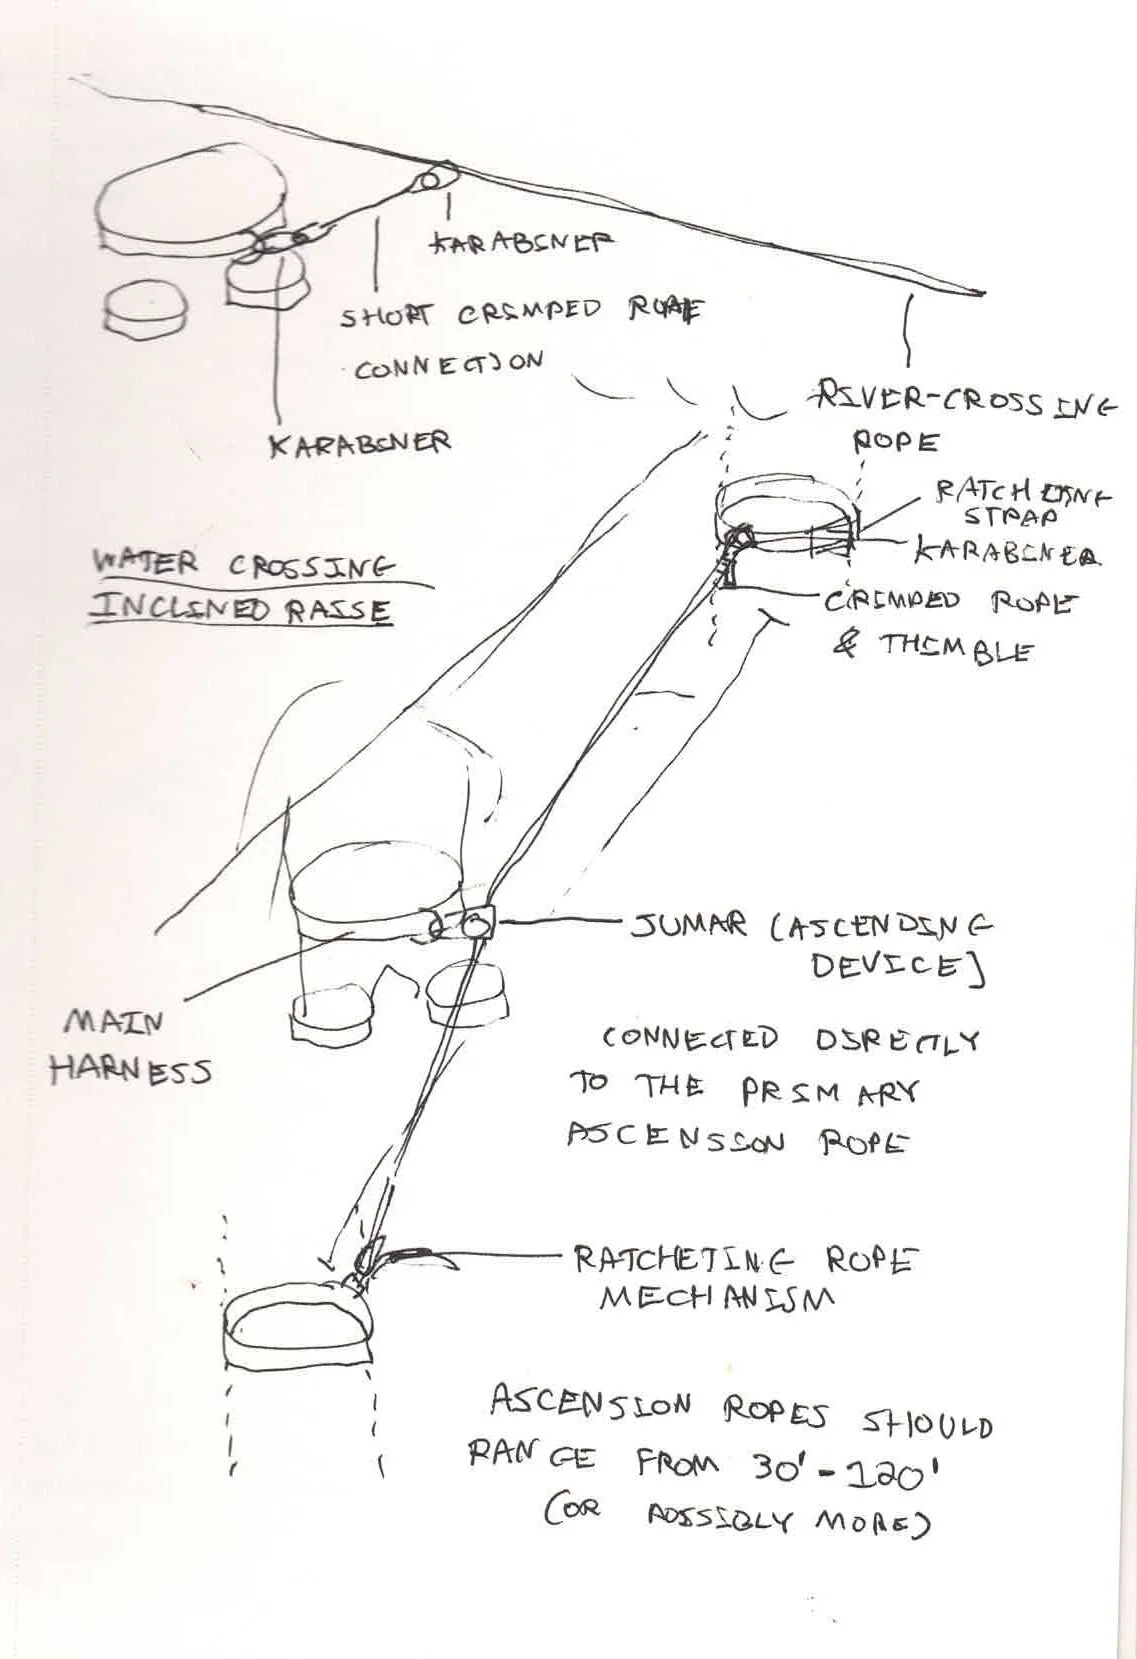 KARABINER
SHORT CRIMPED ROPE
CONNECTION
KARABINER
RIVER-CROSSING
ROPE
RATCHETING
STRAP
KARABINER
CRIMPED ROPE
& THIMBLE
WATER CROSSING
INCLINED RAISE
JUMAR (ASCENDING
DEVICE]
MAIN
HARNESS
CONNECTED DIRECTLY
TO THE PRIMARY
ASCENSION ROPE
RATCHETING ROPE
MECHANISM
ASCENSION ROPES SHOULD
RANGE FROM 30'-120'
(OR POSSIBLY MORE)